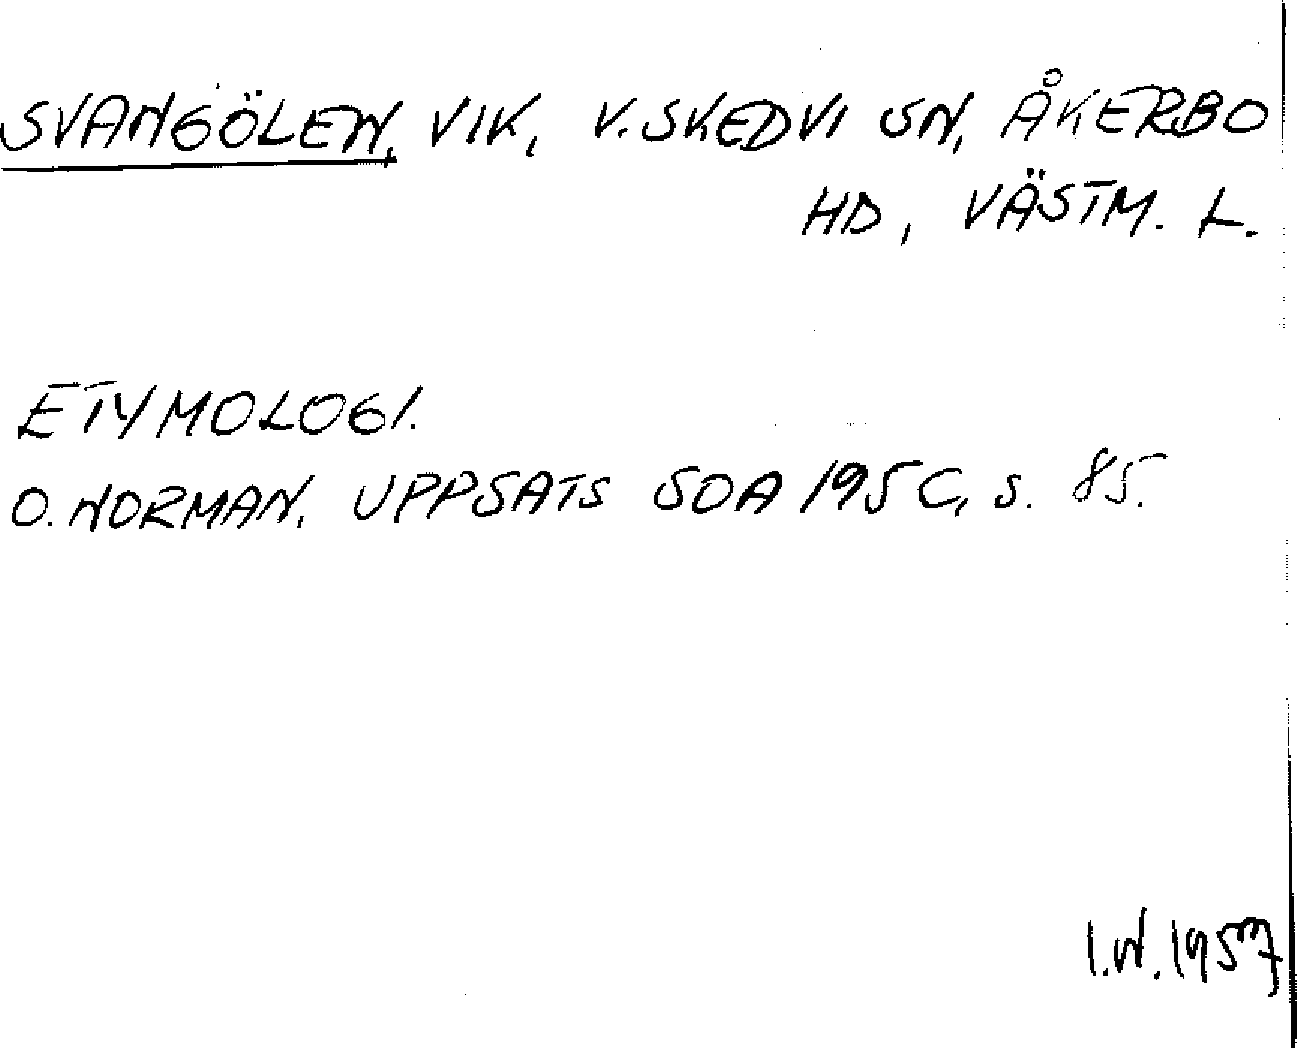 SVANGÖLEN, VIK, V. SKEDVI SN, ÅKERBO
HD, VÄSTM. L.
ETYMOLOGI.
O. NORMAN, UPPSATS SOA 1950, s. 85.
I.W. 1957